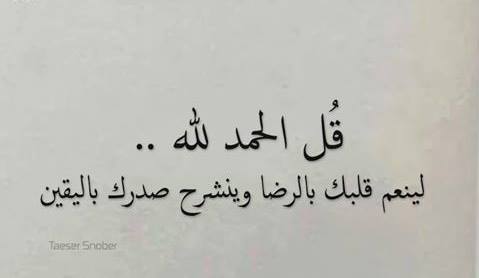 قُل الحمد لله ..
لينعم قلبك بالرضا وينشرح صدرك باليقين
Taeser Snober